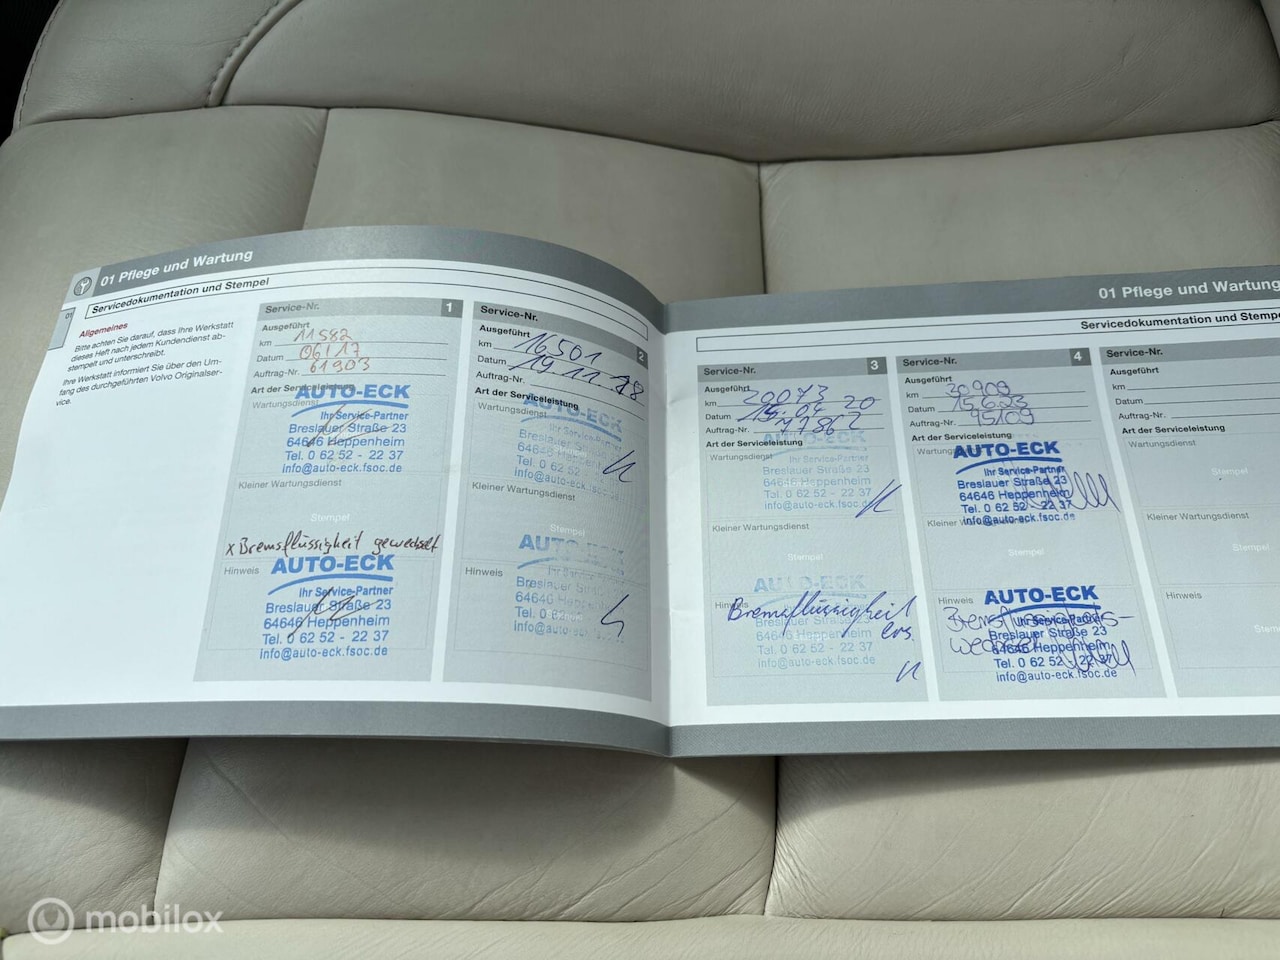 01 Pflege und Wartung
Servicedokumentation und Stempel
01
Allgemeines
Bitte achten Sie darauf, dass Ihre Werkstatt
dieses Heft nach jedem Kundendienst ab-
stempelt und unterschreibt.
Ihre Werkstatt informiert Sie über den Um-
fang des durchgeführten Volvo Originalser-
vice.
Service-Nr. 1
Ausgeführt
km 11582
Datum 06/17
Auftrag-Nr. 61903
Art der Serviceleistung
AUTO-ECK
Wartungsdienst
Ihr Service-Partner
Breslauer Straße 23
64646 Heppenheim
Tel. 0 62 52 - 22 37
info@auto-eck.fsoc.de
Kleiner Wartungsdienst
Stempel
x Bremsflüssigkeit gewechselt
AUTO-ECK
Hinweis
Ihr Service-Partner
Breslauer Straße 23
64646 Heppenheim
Tel. 0 62 52 - 22 37
info@auto-eck.fsoc.de
Service-Nr. 2
Ausgeführt
km 16501
Datum 19 11 18
Auftrag-Nr.
Art der Serviceleistung
AUTO-ECK
Wartungsdienst
Ihr Service-Partner
Breslauer Straße
64646 Heppen
Tel. 0 62 52 -
info@auto-eck.fsoc.de
Kleiner Wartungsdienst
Stempel
AUTO-ECK
Hinweis
Breslauer Straße
64646
Tel. 0 62
info@auto-eck.fsoc.de
01 Pflege und Wartung
Servicedokumentation und Stempe
Service-Nr. 3
Ausgeführt
km 20073
Datum 04 20
Auftrag-Nr. 77862
Art der Serviceleistung
AUTO-ECK
Wartungsdienst
Ihr Service-Partner
Breslauer Straße 23
64646 Heppenheim
Tel. 0 62 52 - 22 37
info@auto-eck.fsoc.de
Kleiner Wartungsdienst
Stempel
AUTO-ECK
Hinweis
Bremsflüssigkeit
ers.
Breslauer Straße 23
64646 Heppenheim
Tel. 0 62 52 - 22 37
info@auto-eck.fsoc.de
Service-Nr. 4
Ausgeführt
km 30909
Datum
Auftrag-Nr. 95109
Art der Serviceleistung
AUTO-ECK
Ihr Service-Partner
Breslauer Straße 23
64646 Heppenheim
Tel. 0 62 52 - 22 37
info@auto-eck.fsoc.de
Kleiner
Stempel
AUTO-ECK
Hinweis
Ihr Service-Partner
Breslauer Straße 23
64646 Heppenheim
Tel. 0 62 52 - 22 37
info@auto-eck.fsoc.de
Service-Nr.
Ausgeführt
km
Datum
Auftrag-Nr.
Art der Serviceleistung
Wartungsdienst
Stempel
Kleiner Wartungsdienst
Stempel
Hinweis
Stem
mobilox